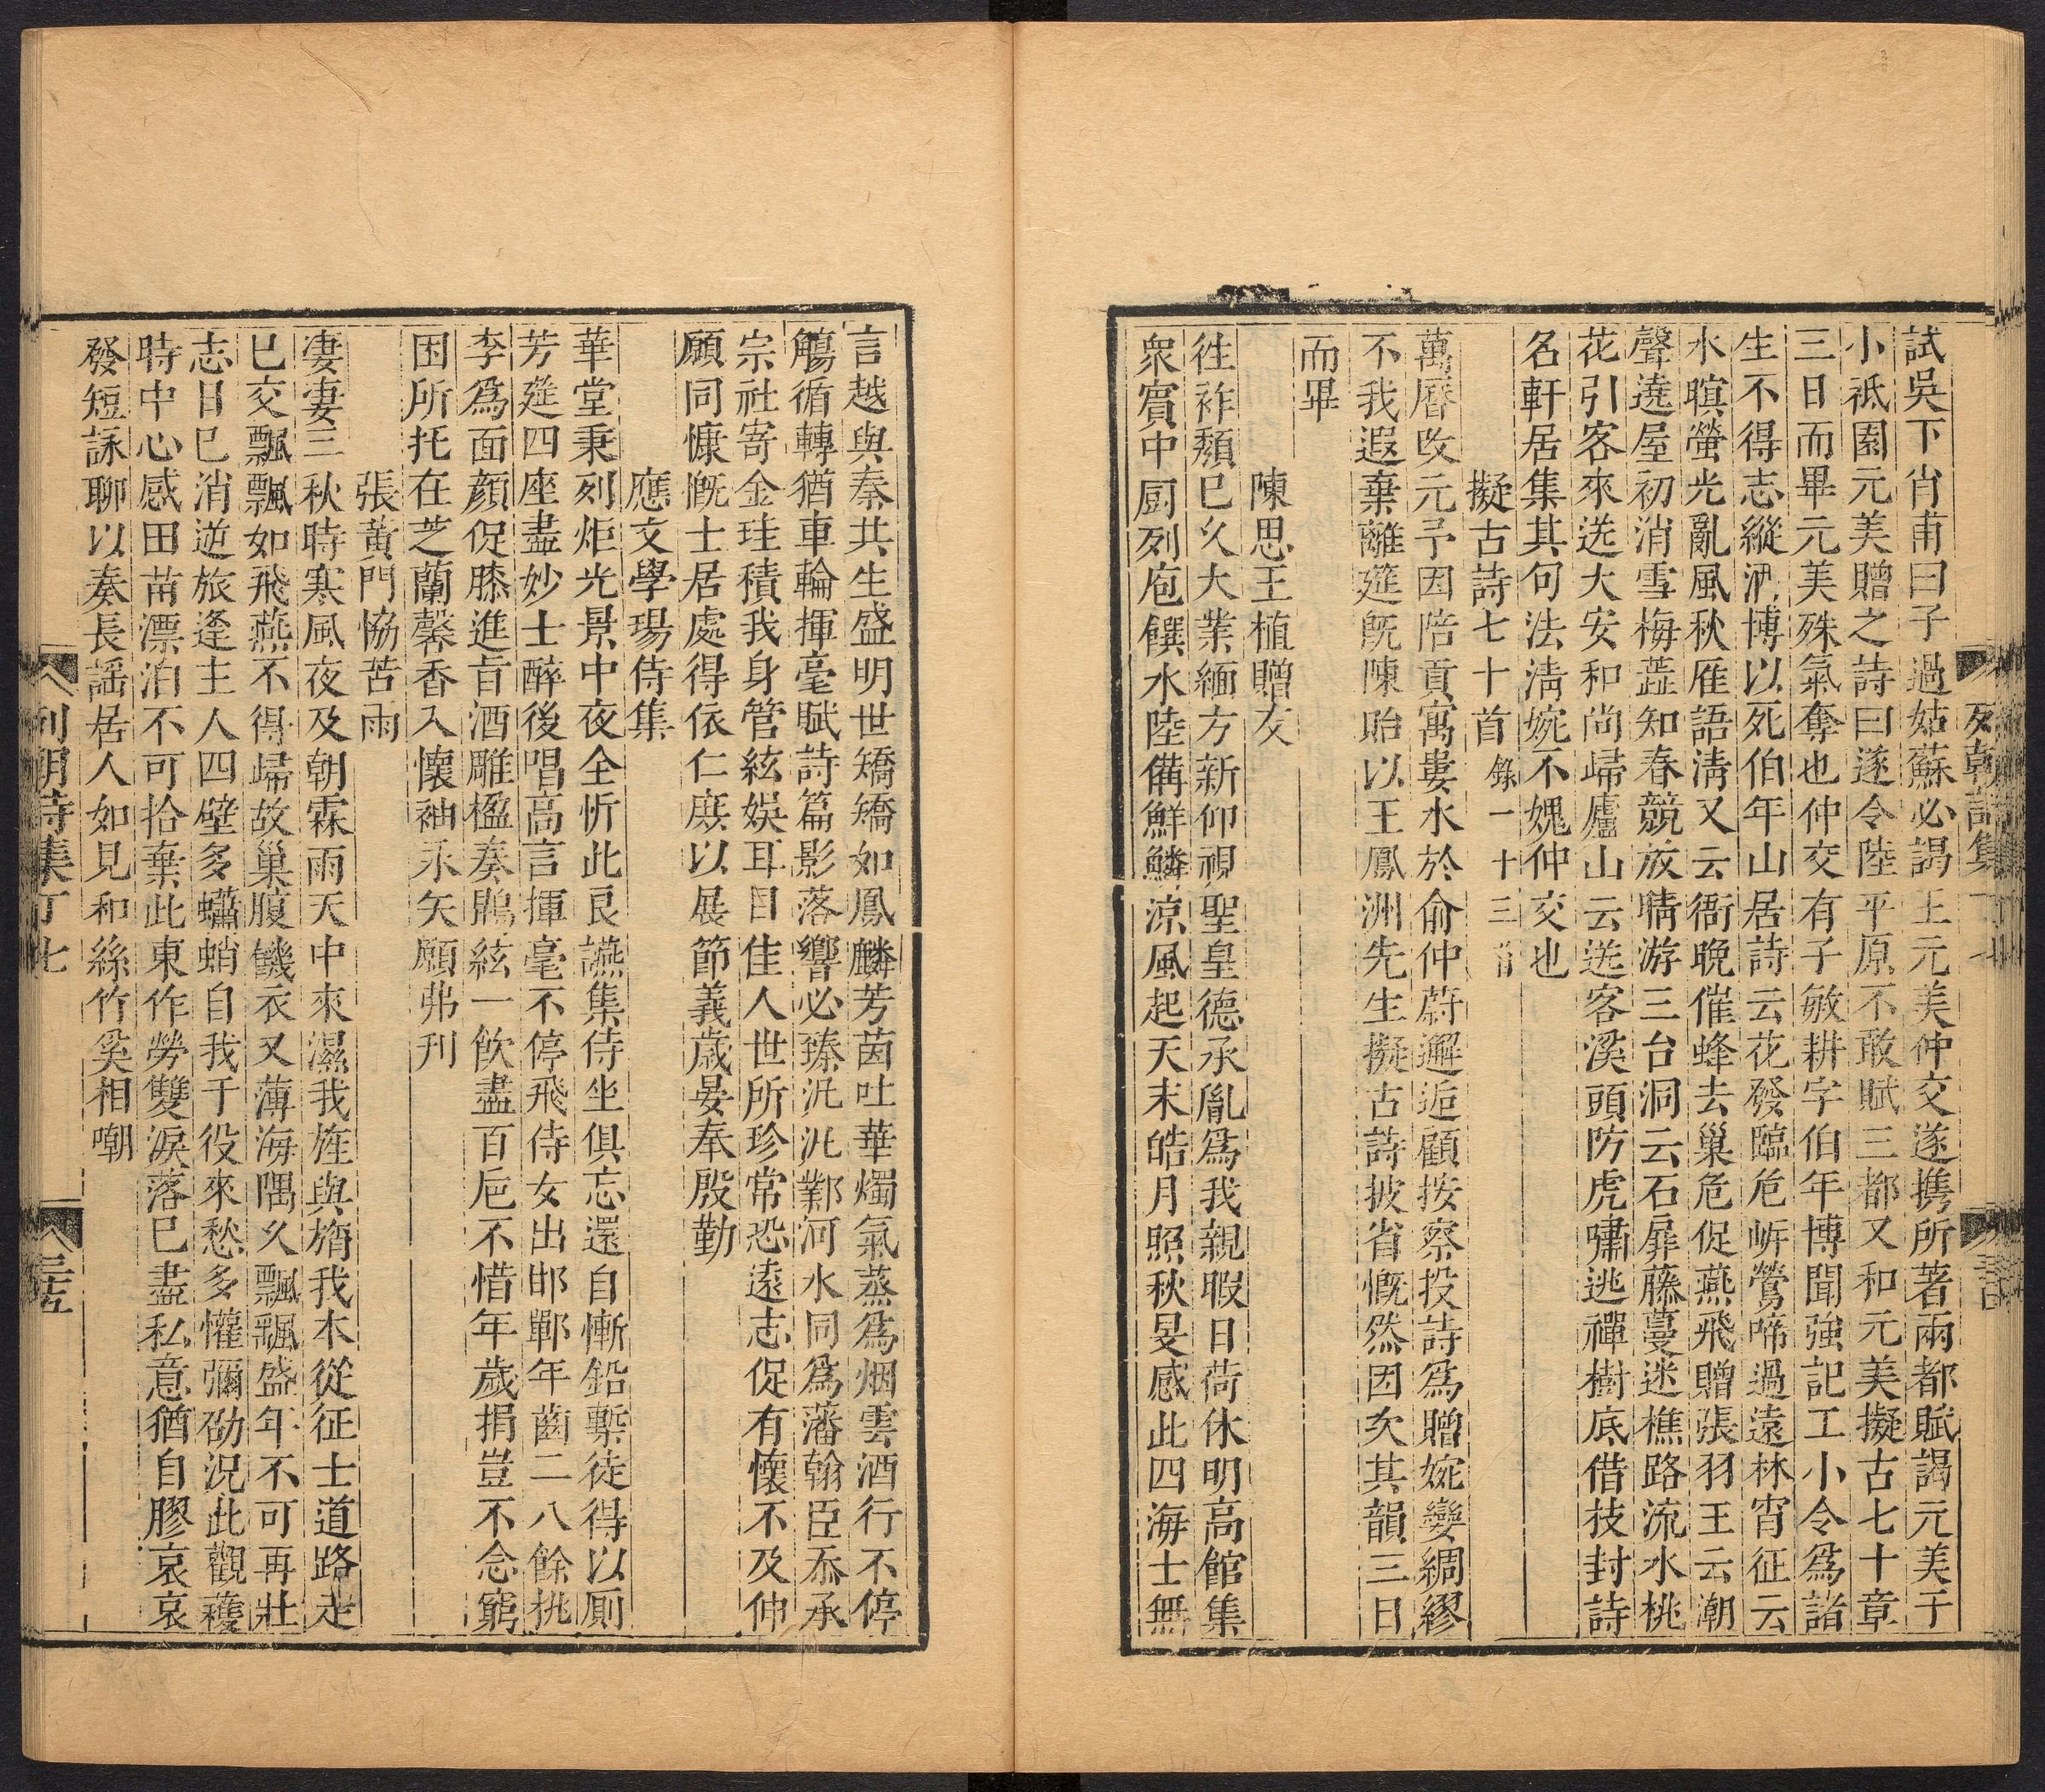 試吳下肖甫曰子過姑蘇必謁王元美仲交遂攜所著兩都賦謁元美于
小祗園元美贈之詩曰遂令陸平原不敢賦三都又和元美擬古七十章
三日而畢元美殊氣奪也仲交有子敏耕字伯年博聞強記工小令爲諸
生不得志縱酒博以死伯年山居詩云花發臨危岍鶯啼過遠林宵征云
水暝螢光亂風秋雁語淸又云衙晚催蜂去巢危促燕飛贈張羽王云潮
聲遶屋初消雪梅蕋知春競放晴游三台洞云石扉藤蔓迷樵路流水桃
花引客來送大安和尚歸廬山云送客溪頭防虎嘯逃禪樹底借技封詩
名軒居集其句法淸婉不媿仲交也
擬古詩七十首錄一十三首
萬曆改元予因陪貢寓婁水於俞仲蔚邂逅顧按察投詩爲贈婉孌綢繆
不我遐棄離筵旣陳貽以王鳳洲先生擬古詩披省慨然因次其韻三日
而畢
陳思王植贈友
徃祚頽已久大業緬方新仰視聖皇德承胤爲我親暇日荷休明高館集
衆賓中厨列庖饌水陸備鮮鱗涼風起天末皓月照秋旻感此四海士無
言越與秦共生盛明世矯矯如鳳麟芳茵吐華燭氣蒸爲烟雲酒行不停
觴循轉猶車輪揮毫賦詩篇影落響必臻汎汎鄴河水同爲藩翰臣忝承
宗社寄金珪積我身管絃娛耳目佳人世所珍常恐遠志促有懷不及伸
願同慷慨士居處得依仁庶以展節義歲晏奉殷勤
應文學瑒侍集
華堂秉列炬光景中夜全忻此良讌集侍坐俱忘還自慚鉛槧徒得以厠
芳筵四座盡妙士醉後唱高言揮毫不停飛侍女出邯鄲年齒二八餘桃
李爲面顔促膝進旨酒雕楹奏鵾絃一飲盡百巵不惜年歲捐豈不念窮
困所托在芝蘭馨香入懷袖永矢願弗刋
張黃門協苦雨
凄凄三秋時寒風夜及朝霖雨天中來濕我旌與旓我本從征士道路走
已交飄飄如飛燕不得歸故巢腹饑衣又薄海隅久飄飄盛年不可再壯
志日已消逆旅逢主人四壁多蠨蛸自我于役來愁多懽彌劭況此觀穫
時中心感田苗漂泊不可拾棄此東作勞雙淚落已盡私意猶自膠哀哀
發短詠聊以奏長謡居人如見和絲竹奚相嘲
列朝詩集丁七